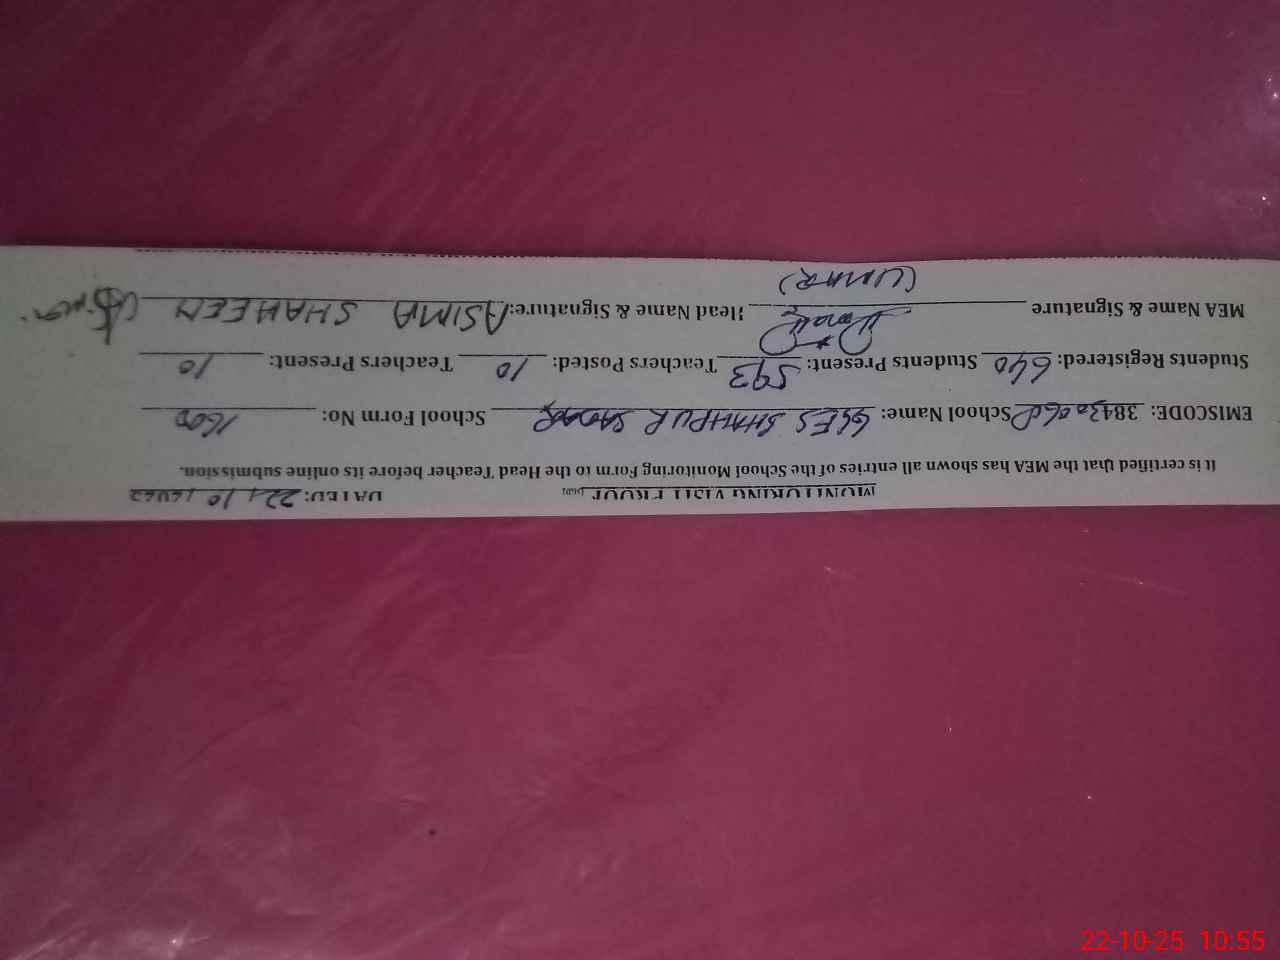 MONITORING VISIT PROOF DATED: 22/10/
It is certified that the MEA has shown all entries of the School Monitoring Form to the Head Teacher before its online submission.
EMISCODE: 3843 School Name: GGES SHAHPUR SADDAR School Form No: 1600
Students Registered: 640 Students Present: 593 Teachers Posted: 10 Teachers Present: 10
MEA Name & Signature Head Name & Signature: ASIMA SHAHEEN
(UMAR)
22-10-25 10:55